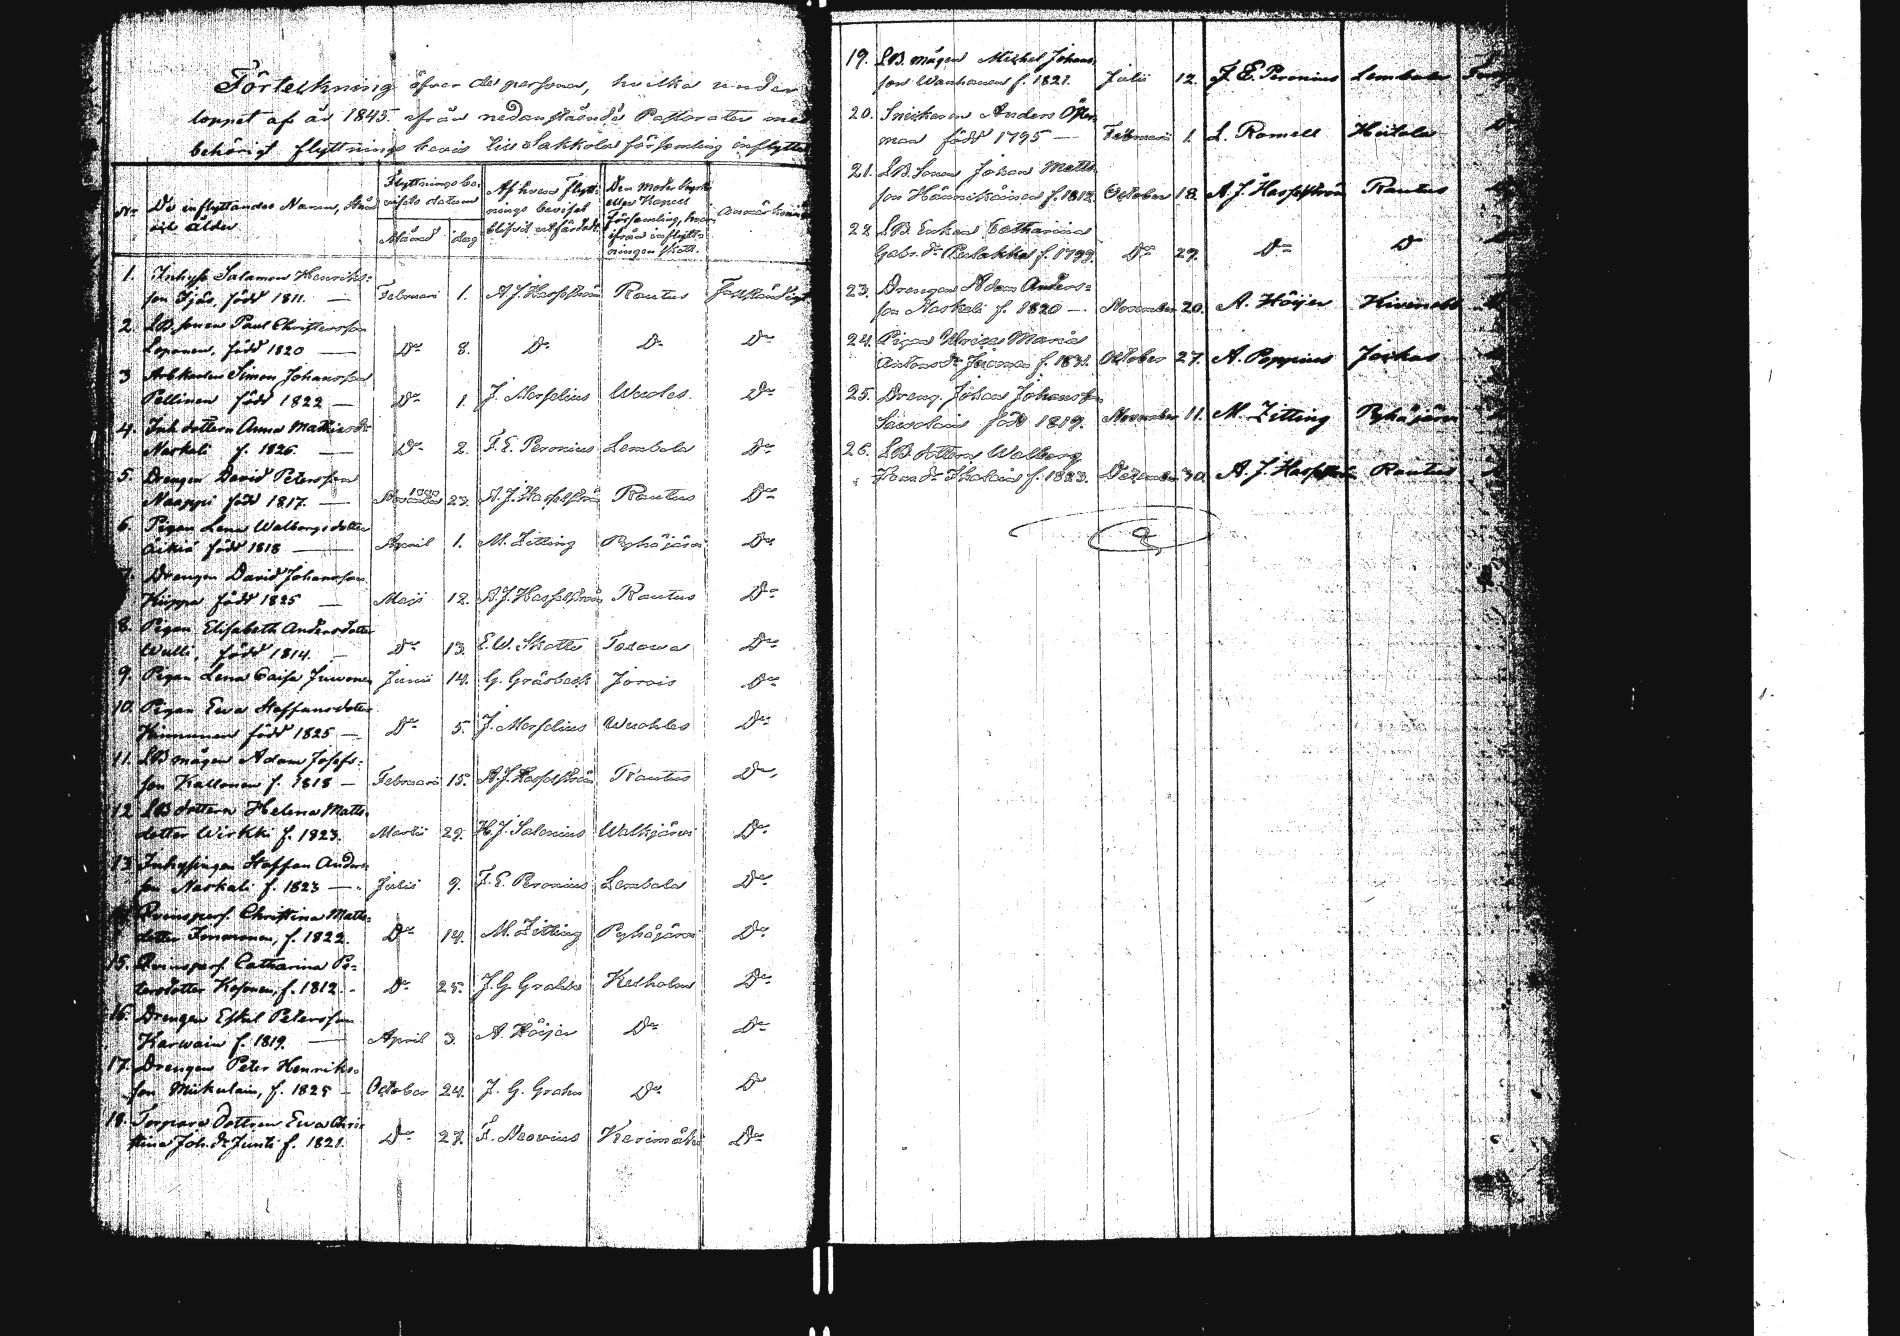 Förteckning öfver de personer, hvilka under
loppet af år 1845 ifrån nedanstående Pastorater med
behörigt flyttnings bevis till Sakkola församling inflyttat
No De inflyttandes Namn, Stånd och ålder. Flyttningsbevisets datum Månad dag Af hvem flyttnings beviset blifvit utfärdadt. Den Moderkyrko eller Kapell Församling, hvarifrån inflyttningen skett. Anmärkningar
1. Inhyss Salomon Henriks-
son Ijäs, född 1811. — Februari 1. A. J. Hasselström Rautus Fullständigt
2. LB. sonen Paul Christersson
Loponen, född 1820 — Do 8. Do Do Do
3 Arbkarlen Simon Johansson
Pellinen född 1822 — Do 1. J. Moselius Wuoles. Do
4. Inh. dottern Anna Mathiasdr
Naskali f. 1826. — Do 2. F. E. Peronius Lembala Do
5. Drengen David Petersson
Naappi född 1817. — 23. A. J. Hasselström Rautus Do
6. Pigan Lena Walborgsdotter
Äikiä född 1818 — April 1. M. Zitting Pyhäjärvi Do
7. Drengen David Johansson
Kiippa född 1825 — Maji 12. A. J. Hasselström Rautus Do
8. Pigan Elisabeth Andersdotter
Walli, född 1814. — Do 13. E. W. Skott Do
9. Pigan Lena Caisa Juvonen Junii 14. G. Gråsbeck Jorois Do
10. Pigan Eva Staffansdotter
Kinnunen född 1825 — Do 5. J. Moselius Wuoles Do
11. LB mågen Adam Josefs-
son Kallonen f. 1818 — Februari 15. A. J. Hasselström Rautus Do
12 LB dottern Helena Matts-
dotter Wirkki f. 1823. Martii 29. H. J. Salenius Walkjärvi Do
13 Inhysingen Staffan Anders-
son Naskali f. 1823 — Julii 9. F. E. Peronius Lembala Do
14. Qvinspers. Christina Matts-
dotter Immonen, f. 1822. Do 14. M. Zitting Pyhäjärvi Do
15. Qvinspers. Catharina Pe-
tersdotter Kosonen, f. 1812 - Do 25. J. G. Grahn Kexholm Do
16. Drengen Eskel Petersson
Karvain f. 1819. — April 3. A. Höijer Do Do
17. Drengen Peter Henriks-
son Mikulain, f. 1825 — October 24. J. G. Grahn Do Do
18. Torpare dottren Eva Chri-
stina Joh.dr Junti f. 1821. Do 27. F. Neovius Kerimäki Do
19. LB. mågen Michel Johans-
son Wanhanen f. 1821. Julii 12. F. E. Peronius Lembala
20. Snickaren Anders Öster-
man född 1795 — Februari 1. L. Romell Hiitola Do
21. LB. Sonen Johan Matts-
son Hännikäinen f. 1812. October 18. A. J. Hasselström Rautus
22 LB Enkan Catharina
Gabr. dr Pulakka f. 1799. Do 29. Do Do
23. Drengen Adam Anders-
son Naskali f. 1820 — November 20. A. Höijer Kivinebb
24. Pigan Ulrica Maria
f. 1831. October 27. A. Poppius Jockas
25. Dreng. Johan Johansson
Savolain född 1819. November 11. M. Zitting Pyhäjärvi
26. LB dottern Walborg
f. 1823. December 30. A. J. Hasselström Rautus